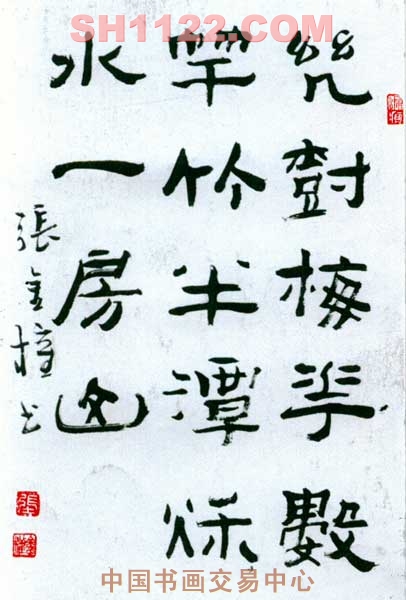 SH1122.COM
幾樹梅花數
竿竹半潭秌
水一房山
張金
中国书画交易中心